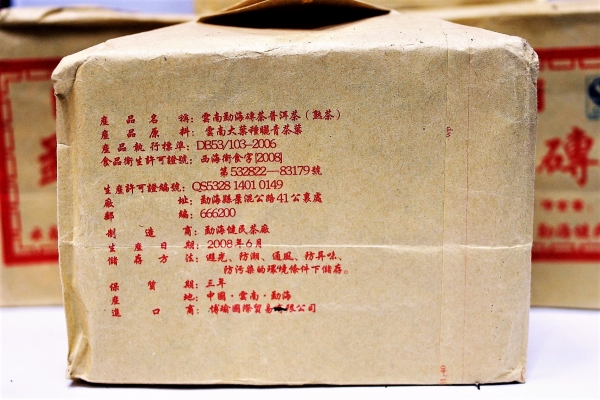 產品名稱：雲南勐海磚茶普洱茶（熟茶）
產品原料：雲南大葉種曬青茶葉
產品執行標準：DB53/103-2006
食品衛生許可證號：西海衛食字[2008]
第532822—83179號
生産許可證編號：QS5328 1401 0149
廠址：勐海縣景混公路41公裏處
郵編：666200
制造商：勐海健民茶廠
生産日期：2008年6月
儲存方法：避光、防潮、通風、防异味、
防污染的環境條件下儲存。
保質期：三年
産地：中國·雲南·勐海
進口商：博瑜國際貿易有限公司
磚
勐海健